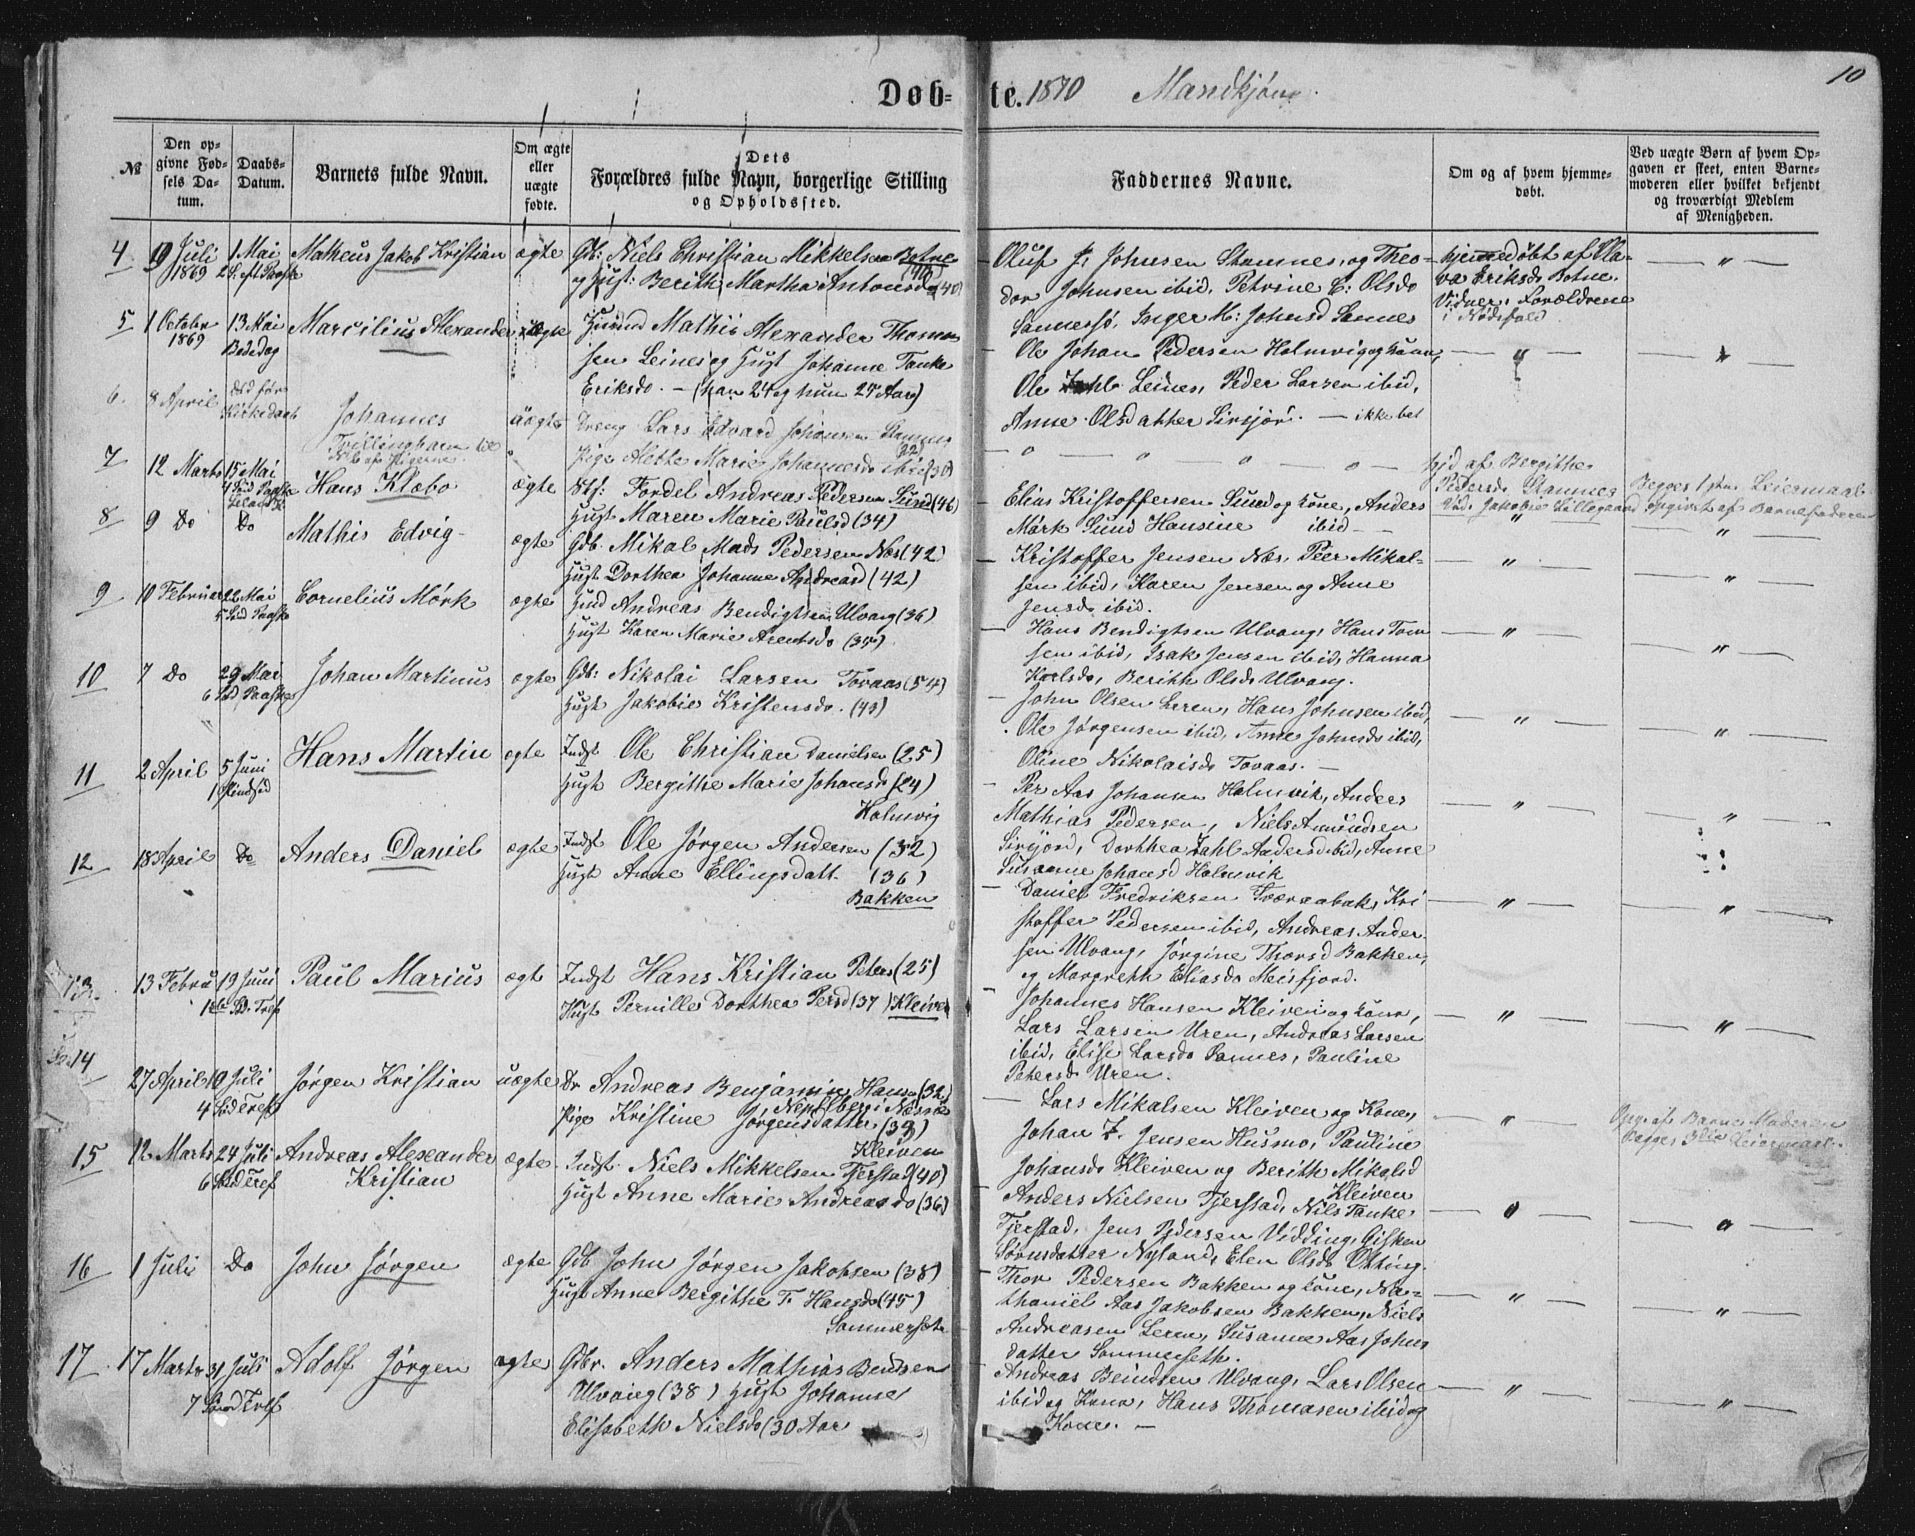 10
Døb-te. 1870 Mandkjøn.
№
Den opgivne Fødsels Datum.
Daabs-Datum.
Barnets fulde Navn.
Om ægte eller uægte fødte.
Dets Forældres fulde Navn, borgerlige Stilling og Opholdssted.
Faddernes Navne.
Om og af hvem hjemmedøbt.
Ved uægte Børn af hvem Opgaven er skeet, enten Barnemoderen eller hvilket bekjendt og troværdigt Medlem af Menigheden.
4. 19 Juli 1869
1 Mai
2 S. eft Paaske
Matheus Jakob Kristian
ægte
Gb: Niels Christian Mikkelsen Botne (40)
og Hust: Berith Martha Antonsd (40)
Oluf J. Johnsen Stamnes, og Theo-
dor Johnsen ibid, Petrine E: Olsdo
Sannessø, Inger M: Johnsd Sannes
hjemmedøbt af Ola-
va Eriksdo Botne.
Vidner: Forældrene
i Nødsfald
"
5 1 October 1869
13 Mai
Bededag
Marcilius Alexander
uægte
Huusmd Mathis Alexander Thom-
sen Leines og Hust Johanne Tanke
Eriksdo. - (han 24 og hun 27 Aar)
Ole Johan Pedersen Holmvig og kone,
Ole Dahl Leines, Peder Larsen ibid,
Anne Olsdatter Sirijor. - ikke bet
" "
6. 8 April
død før
Kirkedaab
Johannes
Trillingbarn
uægte
Dreng Lars Edvard Johansen Stamnes (22)
Pige Alethe Marie Johannesdo ibid (30)
" " " "
hjd af Bergithe
Pedersdo Stamnes
Vid: Jakobie Lillegaard
Begges 1ste Leiermaal
opgivet af Barnefaderen
7 12 Marts
15 Mai
4 Sød Paaske
Hans Klæbo
ægte
Stf: Fordel Andreas Pedersen Sund (46)
Hust Maren Marie Paulsd (34)
Elias Kristoffersen Sund og kone, Anders
Mørk Sund Hansine ibid -
" "
8 9 Do
Do
Mathis Edvig
ægte
Gdb. Mikal Mads Pedersen Næs (42)
Hust Dorthea Johanne Andreasd (42)
Kristoffer Jensen Næs, Peer Mikal-
sen ibid, Karen Jensen og Anne
Jensdo ibid.
" "
9 10 Februar
22 Mai
5 Sød Paaske
Cornelius Mørk
ægte
Husmd Andreas Bendigtsen Ulvang (36)
Hust Karen Marie Arentsdo (35)
Hans Bendigtsen Ulvang, Hans Tom-
sen ibid, Isak Jensen ibid, Hanna
Karlsdo, Berith Olsdo Ulvang.
" "
10 7 Do
29 Mai
6 Sød Paaske
Johan Martinus
ægte
Gdb: Nikolai Larsen Tovaas (54)
Hust Jakobie Kristensdo. (43)
John Olsen Leren, Hans Johnsen ibid,
Ole Jørgensen ibid, Anne Johnsdo ibid,
Oline Nikolaisdo Tovaas. -
" "
11 2 April
5 Juni
1 Pindsed
Hans Martin
ægte
Indst Ole Christian Danielsen (25)
Hust Bergithe Marie Johansdo (24)
Holmvig
Per Aas Johansen Holmvik, Anders
Mathias Pedersen, Niels Amundsen
Sirijord, Dorthea Zahl Andersd ibid, Anne
Susanne Johansd Holmvik
" "
12 18 April
Do
Anders Daniel
ægte
Indst Ole Jørgen Andersen (32)
Hust Anne Ellingsdatt (36)
Bakken
Daniel Fredriksen Tværaabak, Kri-
stoffer Pedersen ibid, Andreas Ander-
sen Ulvang, Jørgine Thorsd Bakken,
og Margreth Eliasdo Meisfjord.
" "
13. 13 Februar
19 Juni
1ste Sd. Tref
Paul Marius
ægte
Indst Hans Kristian Peters (25)
Hust Pernille Dorthea Persd (37) Kleiven
Johannes Hansen Kleiven og kone,
Lars Larsen Uren, Andreas Larsen
ibid, Elise Larsdo Sannes, Pauline
Petersdo Uren.
" "
14 27 April
10 Juli
4 Sød Tref
Jørgen Kristian
uægte
Dr Andreas Benjamin Hansen (32)
Pige Kristine Jørgensdatter (33)
Kleiven
Lars Mikalsen Kleiven og Kone,
Johan J. Jensen Husmo, Pauline
Johansdo Kleiven og Berith Mikalsd
Kleiven
"
Opg. af Barne Moderen
begges 3die Leiermaal.
15 12 Marts
24 Juli
6 Sød Tref
Andreas Alexander
Kristian
ægte
Indst. Niels Mikkelsen Tjerstad (40)
Hust Anne Marie Andreasdo (36)
Anders Nielsen Tjerstad, Nils Tanke
Tjerstad, Jens Pedersen Vidding, Gisken
Sørensdatter Nyland, Elen Olsdo Otting.
" "
16 1 Juli
Do
John Jørgen
ægte
Gdb John Jørgen Jakobsen (38)
Hust Anne Bergithe T. Hansdo (45)
Sommerseth
Thor Pedersen Bakken og kone, Na-
thaniel Aas Jakobsen Bakken, Niels
Andreasen Leren, Susanne Aas Johns
datter Sommerseth.
" "
17 17 Marts
31 Juli
7 Sønd Tref
Adolf Jørgen
ægte
Gdbr. Anders Mathias Bentsen
Ulvang (38) Hust Johanne
Elisabeth Nielsdo (30 Aar
Andreas Beindsen Ulvang, Lars Olsen
ibid og Kone, Hans Thomasen ibid og
Kone. -
" "